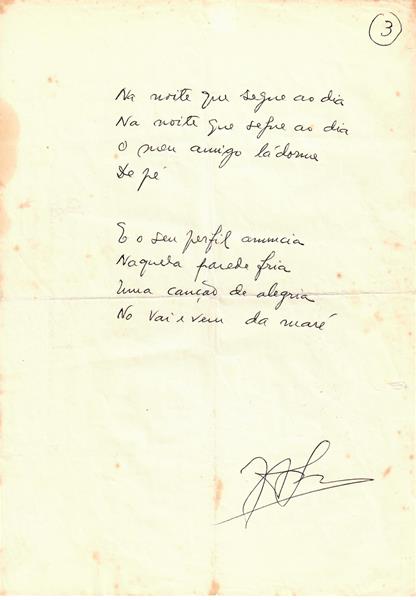 3
Na noite que segue ao dia
Na noite que segue ao dia
O meu amigo lá dorme
De pé
E o seu perfil anuncia
Naquela parede fria
Uma canção de alegria
No vai e vem da maré